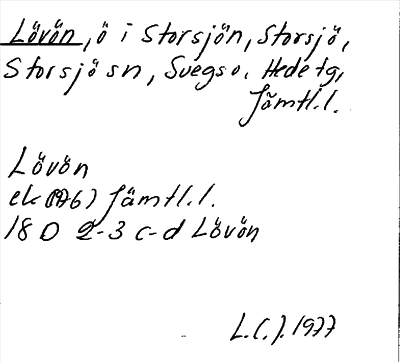 Lövön, ö i Storsjön, Storsjö,
Storsjö sn, Svegs o. Hede tg,
Jämtl.l.
Lövön
ek (1976) Jämtl.l.
18 D 2-3 c-d Lövön
L.C.J. 1977